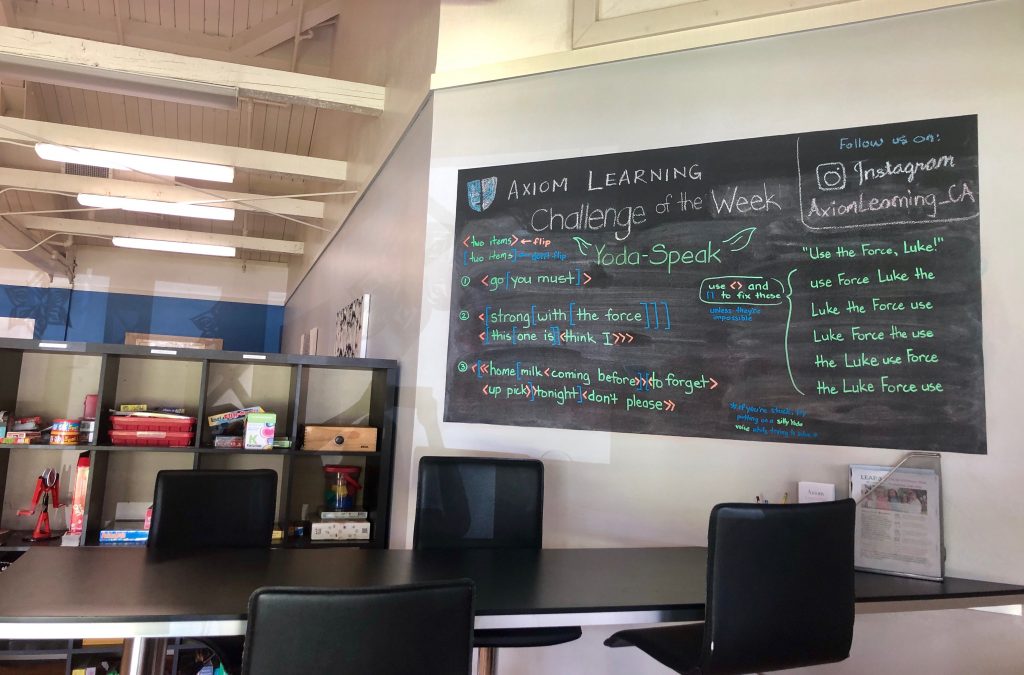 AXIOM LEARNING
Challenge of the Week
Yoda-Speak
<two items> ← flip
[two items] ← don't flip
① <go[you must]>
② <[strong[with[the force]]]
<[this[one is]]<think I>>>
③ <[<<home[milk<coming before>>]<to forget>
<up pick>]tonight]<don't please>>
Follow us on:
Instagram
AxiomLearning_CA
"Use the Force, Luke!"
use Force Luke the
Luke the Force use
Luke Force the use
the Luke use Force
the Luke Force use
use <> and
[] to fix these
unless they're
impossible
if you're stuck, try
putting on a silly Yoda
voice while trying to solve it
Axiom
LEAR